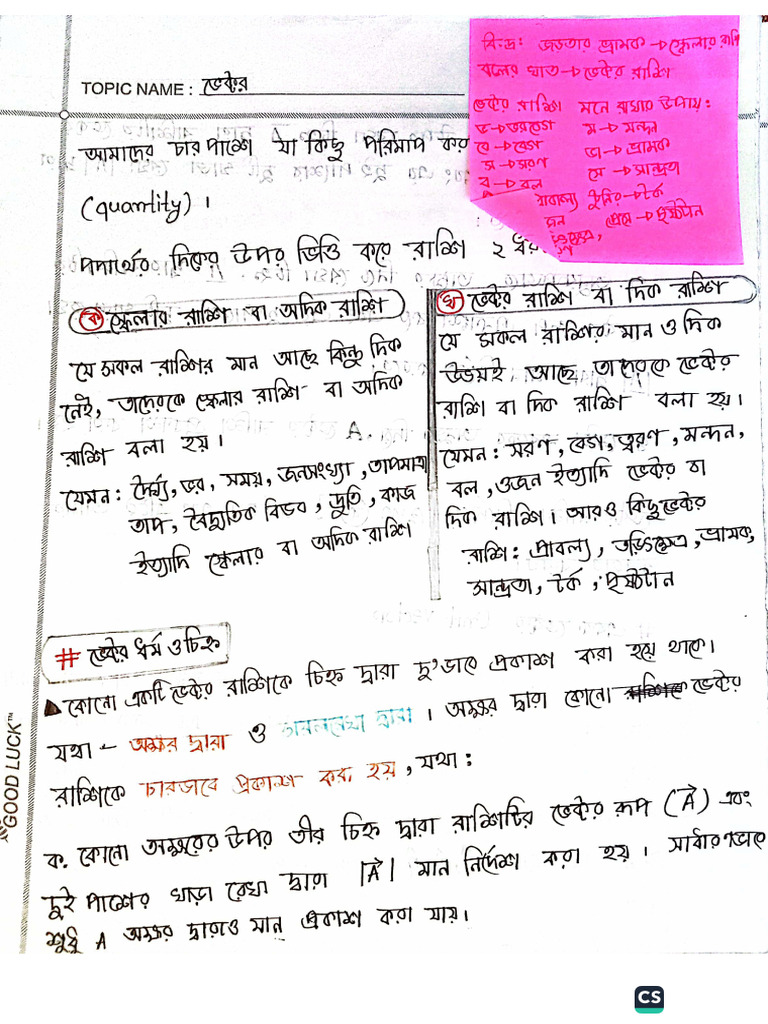 TOPIC NAME : ভেক্টর
বি:দ্র: জড়তার ভ্রামক → স্কেলার রাশি
বলের ঘাত → ভেক্টর রাশি
ভেক্টর রাশি মনে রাখার উপায়:
ত → ত্বরণ বেগ
বে → বেগ
স → সরণ
ব → বল
প্রাবল্য
ম → মন্দন
ভ্রা → ভ্রামক
সে → সান্দ্রতা
টুনির → টর্ক
প্রেমে → পৃষ্ঠটান
আমাদের চারপাশে যা কিছু পরিমাপ কর
(quantity) ।
পদার্থের দিকের উপর ভিত্তি করে রাশি ২ ধর
ক স্কেলার রাশি বা অদিক রাশি
যে সকল রাশির মান আছে কিন্তু দিক
নেই, তাদেরকে স্কেলার রাশি বা অদিক
রাশি বলা হয়।
যেমন : দৈর্ঘ্য, ভর, সময়, জনসংখ্যা, তাপমাত্রা
তাপ, বৈদ্যুতিক বিভব, দ্রুতি, কাজ
ইত্যাদি স্কেলার বা অদিক রাশি
খ ভেক্টর রাশি বা দিক রাশি
যে সকল রাশির মান ও দিক
উভয়ই আছে তাদেরকে ভেক্টর
রাশি বা দিক রাশি বলা হয়।
যেমন : সরণ, বেগ, ত্বরণ, মন্দন,
বল, ওজন ইত্যাদি ভেক্টর বা
দিক রাশি। আরও কিছু ভেক্টর
রাশি : প্রাবল্য, তড়িৎক্ষেত্র, ভ্রামক,
সান্দ্রতা, টর্ক, পৃষ্ঠটান
# ভেক্টর ধর্ম ও চিহ্ন
কোনো একটি ভেক্টর রাশিকে চিহ্ন দ্বারা দু'ভাবে প্রকাশ করা হয়ে থাকে।
যথা - অক্ষর দ্বারা ও সরলরেখা দ্বারা । অক্ষর দ্বারা কোনো রাশিকে ভেক্টর
রাশিকে চারভাবে প্রকাশ করা হয়, যথা :
ক. কোনো অক্ষরের উপর তীর চিহ্ন দ্বারা রাশিটির ভেক্টর রূপ (A⃗) এবং
দুই পাশের খাড়া রেখা দ্বারা |A⃗| মান নির্দেশ করা হয়। সাধারণভাবে
শুধু A অক্ষর দ্বারাও মান প্রকাশ করা যায়।
GOOD LUCK™
CS